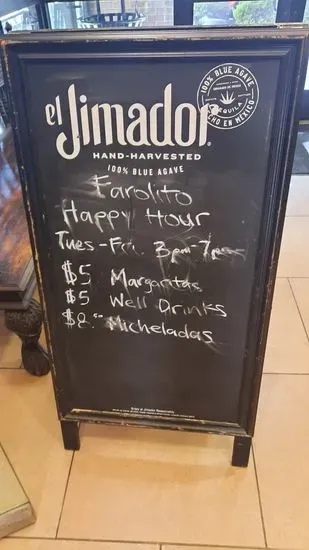 el Jimador
100% BLUE AGAVE
TEQUILA
HECHO EN MEXICO
HAND-HARVESTED
100% BLUE AGAVE
Farolito
Happy Hour
Tues-Fri. 3pm-7pm
$5 Margaritas
$5 Well Drinks
$8.00 Micheladas